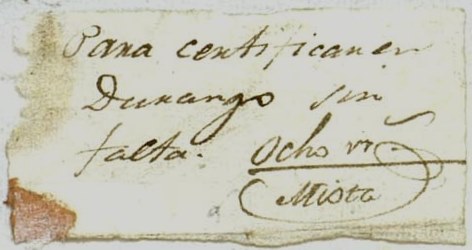 Para certificar en
Durango sin
falta. Ocho rs.
Mista